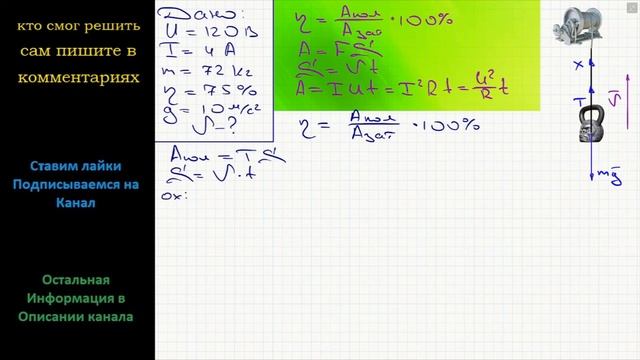 кто смог решить
сам пишите в
комментариях
Ставим лайки
Подписываемся на
Канал
Остальная
Информация в
Описании канала
Дано:
U = 120 В
I = 4 А
m = 72 кг
η = 75 %
g = 10 м/с²
υ - ?
η = Апол/Азат · 100%
A = FS
S = υt
A = IUt = I²Rt = U²/R t
η = Апол/Азат · 100%
Апол = TS
S = υ · t
ох:
x
T
υ
mg